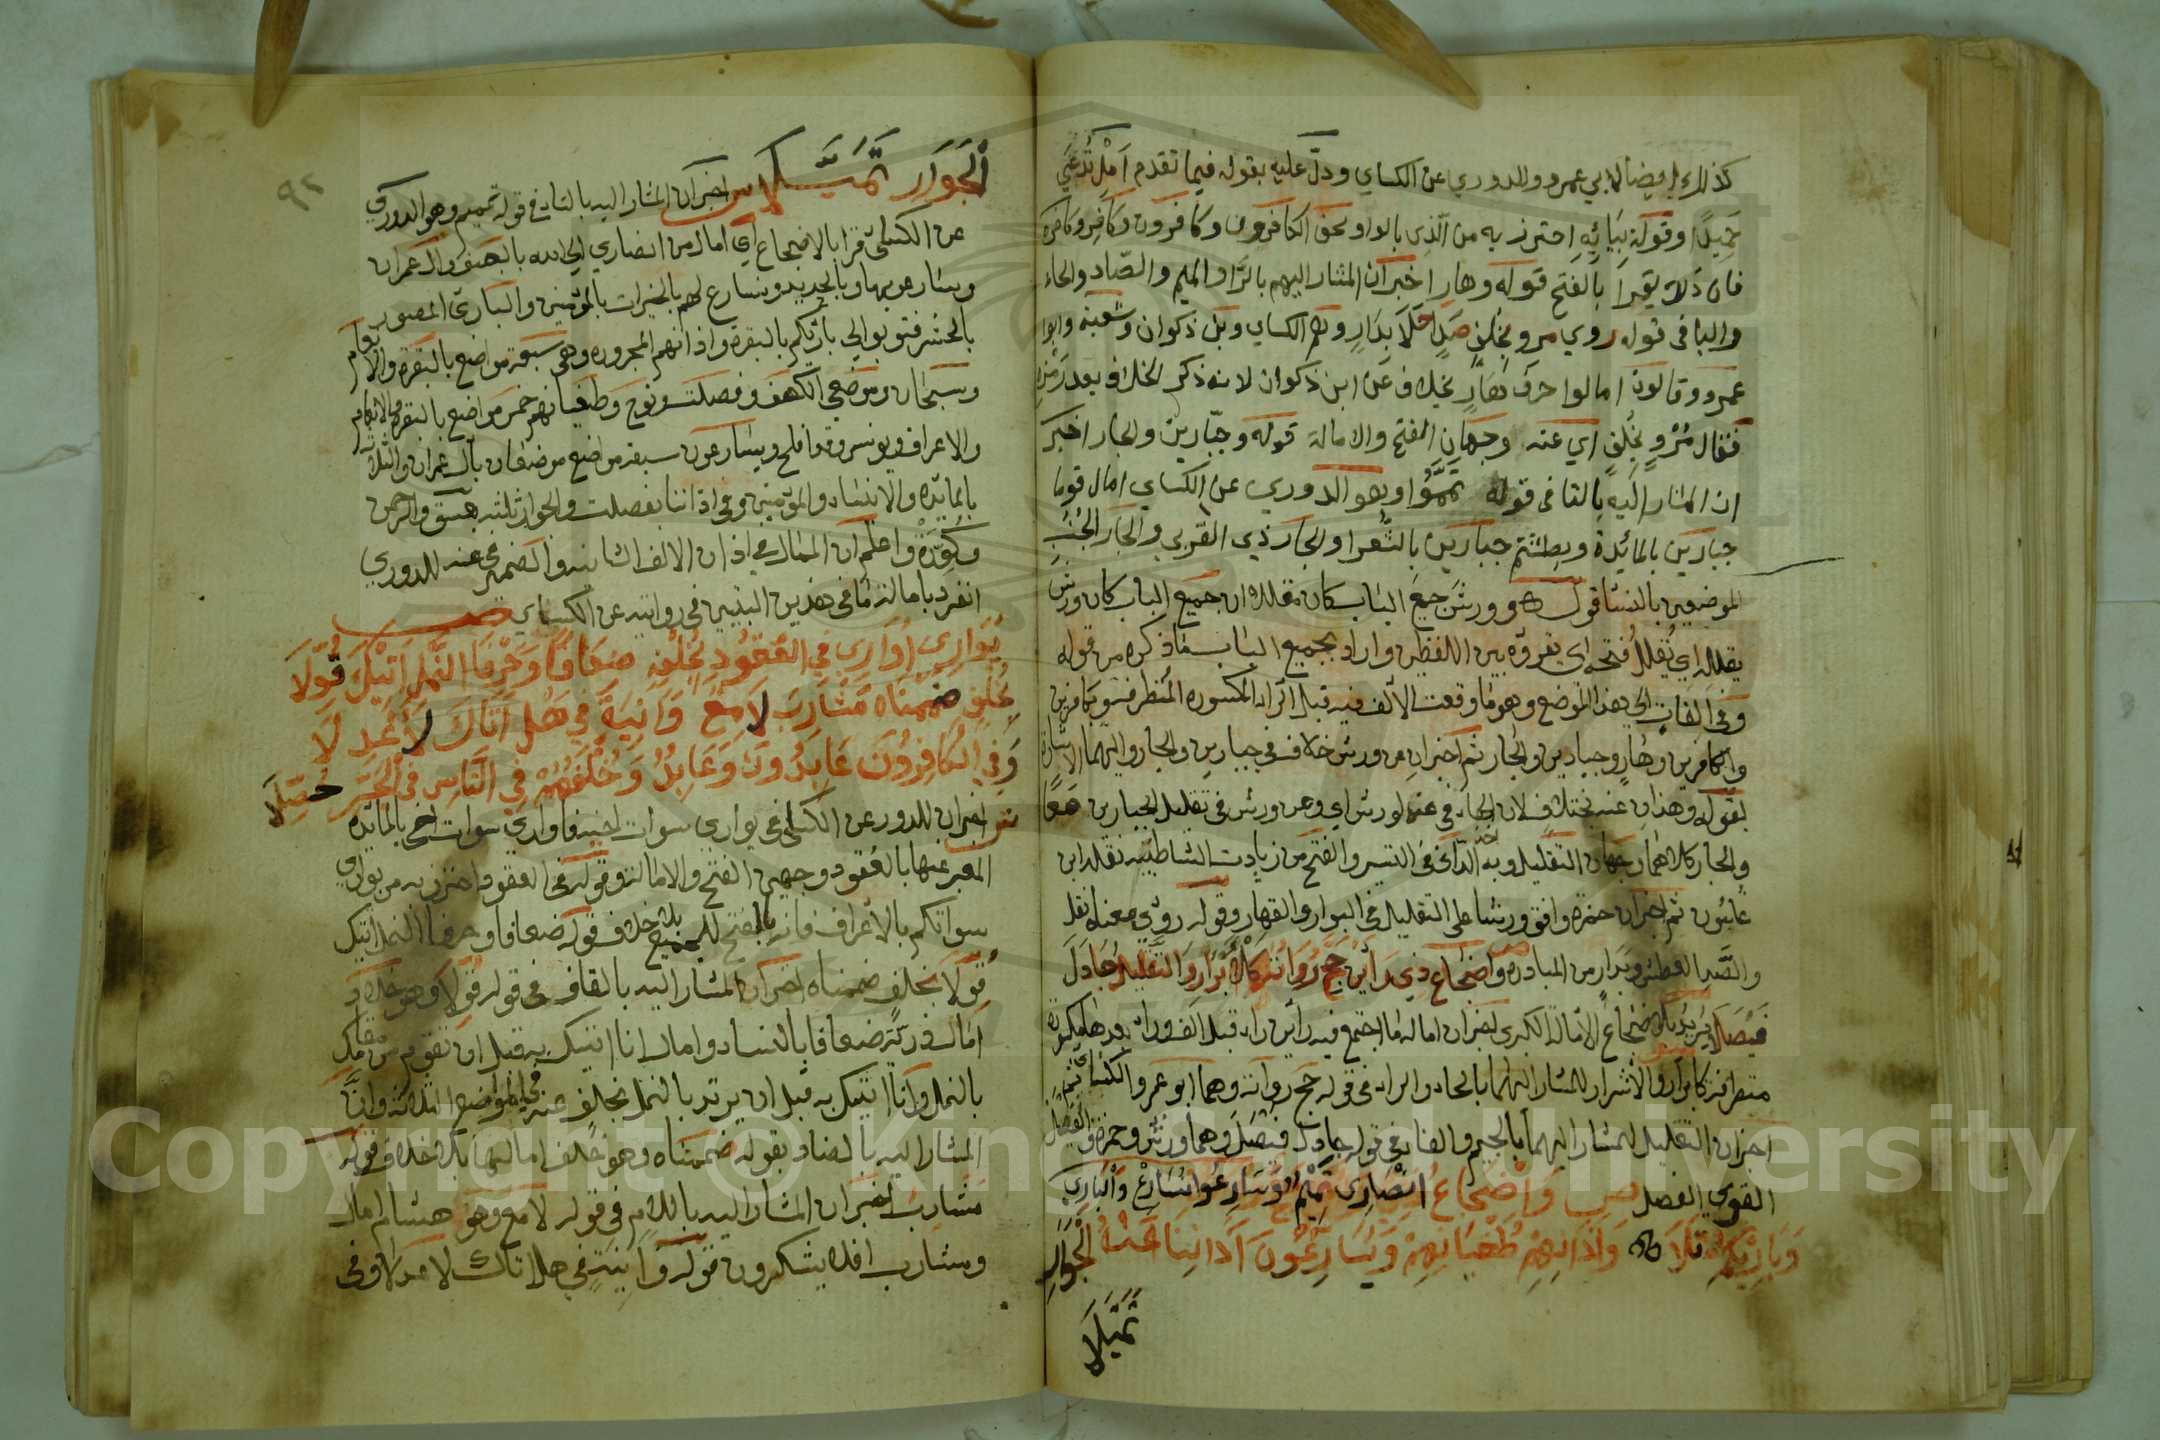 كذلك ايضا لابي عمرو والدوري عن الكساي ودل عليه بقوله فيما تقدم امل تدعى
حميدا وقوله بيائه احترز به من الذي بالواو نحو الكافرون وكافرون وكافر وكافرة
فان ذلك يقرا بالفتح قوله وهار اخبر ان المشار اليهم بالراء والميم والصاد والحاء
والبا في قوله روي مرو بخلف صد حلا بدار وهم الكساي وبن ذكوان وشعبة وابو
عمرو وقالون امالوا حرف هار بخلاف عن ابن ذكوان لانه ذكر الخلاف بعد رمزه
فقال مرو بخلف اي عنه وجهان الفتح والامالة قوله وجبارين والجار اخبر
ان المشار اليه بالتا في قوله تمموا وهو الدوري عن الكساي امال قوما
جبارين بالمائدة وبطشتم جبارين بالشعرا والجار ذي القربى والجار الجنب
الموضعين بالنسا قوله وورش جميع الباب كان مقلله ان جميع الباب كان ورش
يقلله اي يقلل فتحه اي يقروه بين اللفظين واراد بجميع الباب ما ذكره من قوله
وفي الفات الى هذا الموضع وهو ما وقعت الالف فيه قبل الراء المكسورة المتطرفة وكافرين
والكافرين وهار وجبارين والجار ثم اخبر ان عن ورش خلاف في جبارين والجار واليهما الاشارة
بقوله وهذان عنه باختلاف لان الهاء في عنه لورش اي وعن ورش في تقليل الجبارين معا
والجار كلاهما وجهان التقليل وبه اخذ الداني في التيسير والفتح من زيادات الشاطبية نقله ابن
غلبون ثم اخبر ان حمزة وافق ورشا على التقليل في البوار والقهار وقوله روي معناه نقل
والصد العطش وبدار من المبادرة ص واضجاع ذي راءين حج رواته كالابرار والتقليل جادل
فيصلا يريد بالاضجاع الامالة الكبرى اخبر ان امالة ما اجتمع فيه راءين راء قبل الف وراء بعدها مكسورة
متطرفة كالابرار والاشرار للمشار اليهما بالحاء والراء في قوله حج رواته وهما ابو عمرو والكسائي ثم
اخبر ان التقليل للمشار اليهما بالجيم والفا في قوله جادل فيصلا وهما ورش وحمزة والفيصل
القوي الفصل ص واضجاع انصاري تميم وسارعوا نسارع والباري
وبارئكم تلا واذانهم طغيانهم ويسارعون اذاننا عنه الجوار
تمثلا
٩٢
الجوار تمثلا ش اخبر ان المشار اليه بالتاء في قوله تميم وهو الدوري
عن الكسائي قرا بالاضجاع اي امال من انصاري الى الله بالصف وال عمران
وسارعوا بها وبالحديد ونسارع لهم بالخيرات بالمؤمنين والباري المصور
بالحشر فتوبوا الى بارئكم بالبقرة واذانهم المجرورة وهي سبعة مواضع بالبقرة والانعام
وسبحان وموضعي الكهف وفصلت ونوح وطغيانهم خمس مواضع بالبقرة والانعام
والاعراف ويونس وقد افلح ويسارعون سبعة مواضع موضعان بال عمران وثلاث
بالمائدة والانبياء والمؤمنين وفي اذاننا بفصلت والجوار ثلثة بعسق والرحمن
وكورت واعلم ان الممال في اذان الالف الثانية والضمير في عنه للدوري
انفرد بامالة ما في هذين البيتين في روايته عن الكساي ص
يواري اواري في العقود بخلفه ضعافا وحرفا النمل اتيك قولا
بخلف ضممناه مشارب لامع وانية في هل اتاك لاعدلا
وفي الكافرون عابدون وعابد وخلفهم في الناس في الجر حصلا
ش اخبر ان للدوري عن الكسائي في يواري سوات اخيه فاواري سوات اخي بالمائدة
المعبر عنها بالعقود وجهين الفتح والامالة وقوله في العقود احترز به من يواري
سواتكم بالاعراف فانه بالفتح للجميع بلا خلاف قوله ضعافا وحرفا النمل اتيك
قولا بخلف ضممناه اخبر ان المشار اليه بالقاف في قوله قولا وهو خلاد
امال ذرية ضعافا بالنساء وامال انا اتيك به قبل ان تقوم من مقامك
بالنمل وانا اتيك به قبل ان يرتد بالنمل بخلاف عنه في المواضع الثلاثة وان
المشار اليه بالضاد بقوله ضممناه وهو خلف امالها بلا خلاف وقوله
مشارب اخبر ان المشار اليه باللام في قوله لامع وهو هشام امال
ومشارب افلا يشكرون قوله وانية في هل اتاك لاعدلا وفي
Copyright © King Saud University